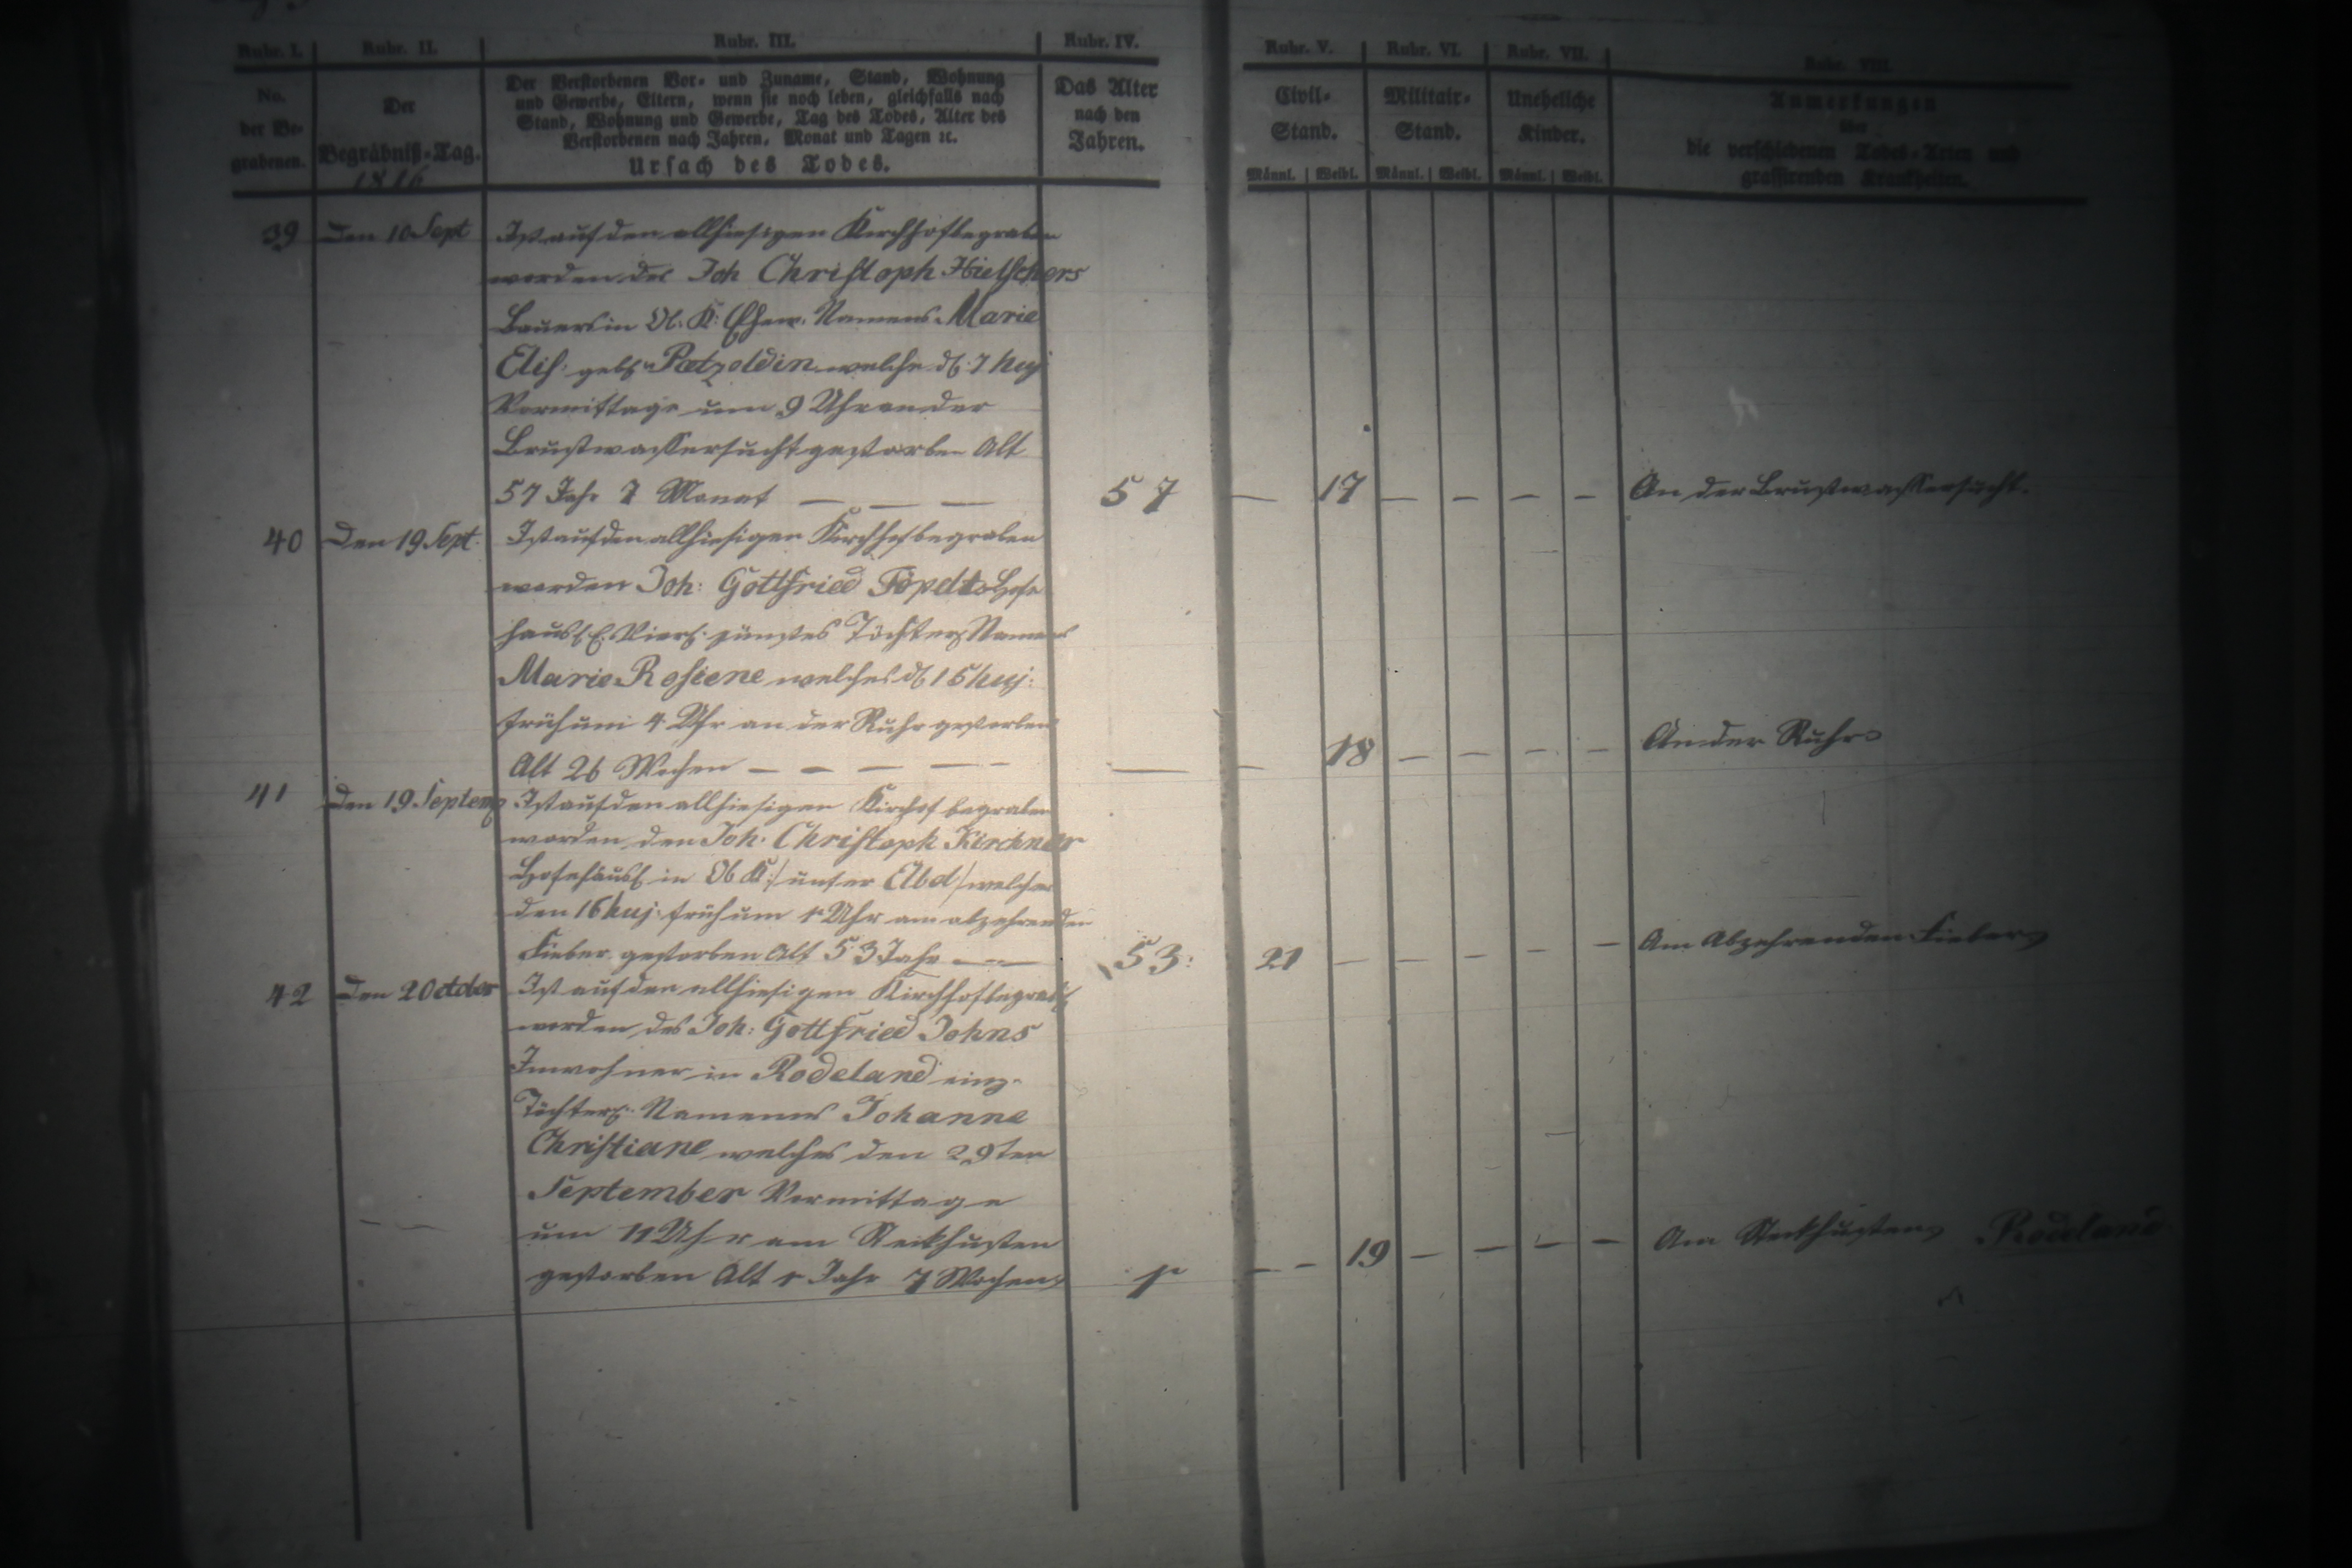 Rubr. I. Rubr. II. Rubr. III. Rubr. IV. Rubr. V. Rubr. VI. Rubr. VII. Rubr. VIII.
No.
der Be-
grabenen.
Der
Begräbniß-Tag.
1816
Der Verstorbenen Vor- und Zuname, Stand, Wohnung
und Gewerbe, Eltern, wenn sie noch leben, gleichfalls nach
Stand, Wohnung und Gewerbe, Tag des Todes, Alter des
Verstorbenen nach Jahren, Monat und Tagen ꝛc.
Ursach des Todes.
Das Alter
nach den
Jahren.
Civil-
Stand.
Militair-
Stand.
Uneheliche
Kinder.
Männl. Weibl. Männl. Weibl. Männl. Weibl.
Anmerkungen
über
die verschiedenen Todes-Arten und
grassirenden Krankheiten.
39 Den 10 Sept Ist auf den allhiesigen Kirchhof begraben
worden des Joh Christoph Hielschers
Bauers in Ob. K: Ehew. Namens Marie
Elis: geb. Pætzoldin welche d. 7 huj
Vormittags um 9 Uhr an der
Brustwassersucht gestorben Alt
57 Jahr 7 Monat — — — 57 — 17 — — — — An der Brustwassersucht.
40 Den 19 Sept. Ist auf den allhiesigen Kirchhof begraben
worden Joh: Gottfried
Töchterl. Namens
Marie Rosiene welches d. 15 huj:
früh um 4 Uhr an der Ruhr gestorben
Alt 26 Wochen — — — — — — — 18 — — — — An der Ruhr
41 Den 19 Septemb Ist auf den allhiesigen Kirchhof begraben
worden den Joh: Christoph Kirchner
in Ob K: / unter Abd / welcher
den 16 huj: früh um 1 Uhr am abzehrenden
Fieber gestorben Alt 53 Jahr — — 53: 21 — — — — — Am Abzehrenden Fieber
42 Den 2 October Ist auf den allhiesigen Kirchhof begrab.
worden des Joh: Gottfried Johns
Inwohner in Rodeland einz.
Töchterl. Namens Johanne
Christiane welches den 29ten
September Vormittage
um 11 Uhr am Steckhusten
gestorben Alt 1 Jahr 7 Wochen 1 — — 19 — — — — Am Steckhusten Rodeland